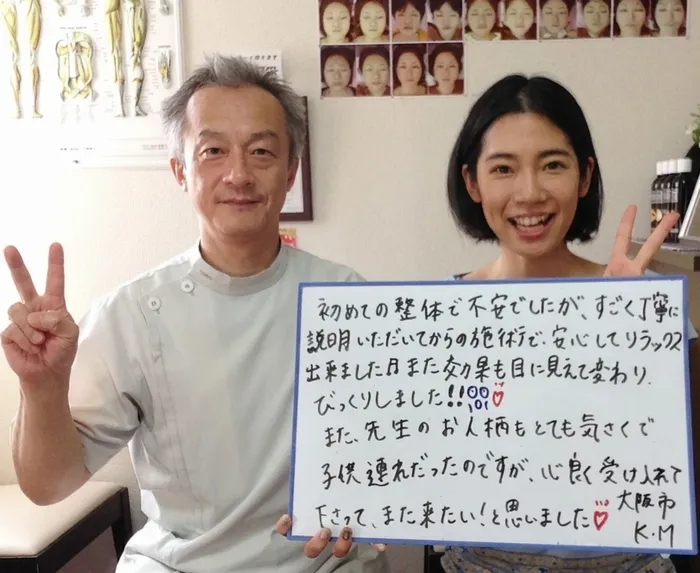 初めての整体で不安でしたが、すごく丁寧に
説明いただいてからの施術で、安心してリラックス
出来ました。また効果も目に見えて変わり、
びっくりしました!!
また、先生のお人柄もとても気さくで
子供連れだったのですが、心良く受け入れて
下さって、また来たい!と思いました
大阪市
K.M